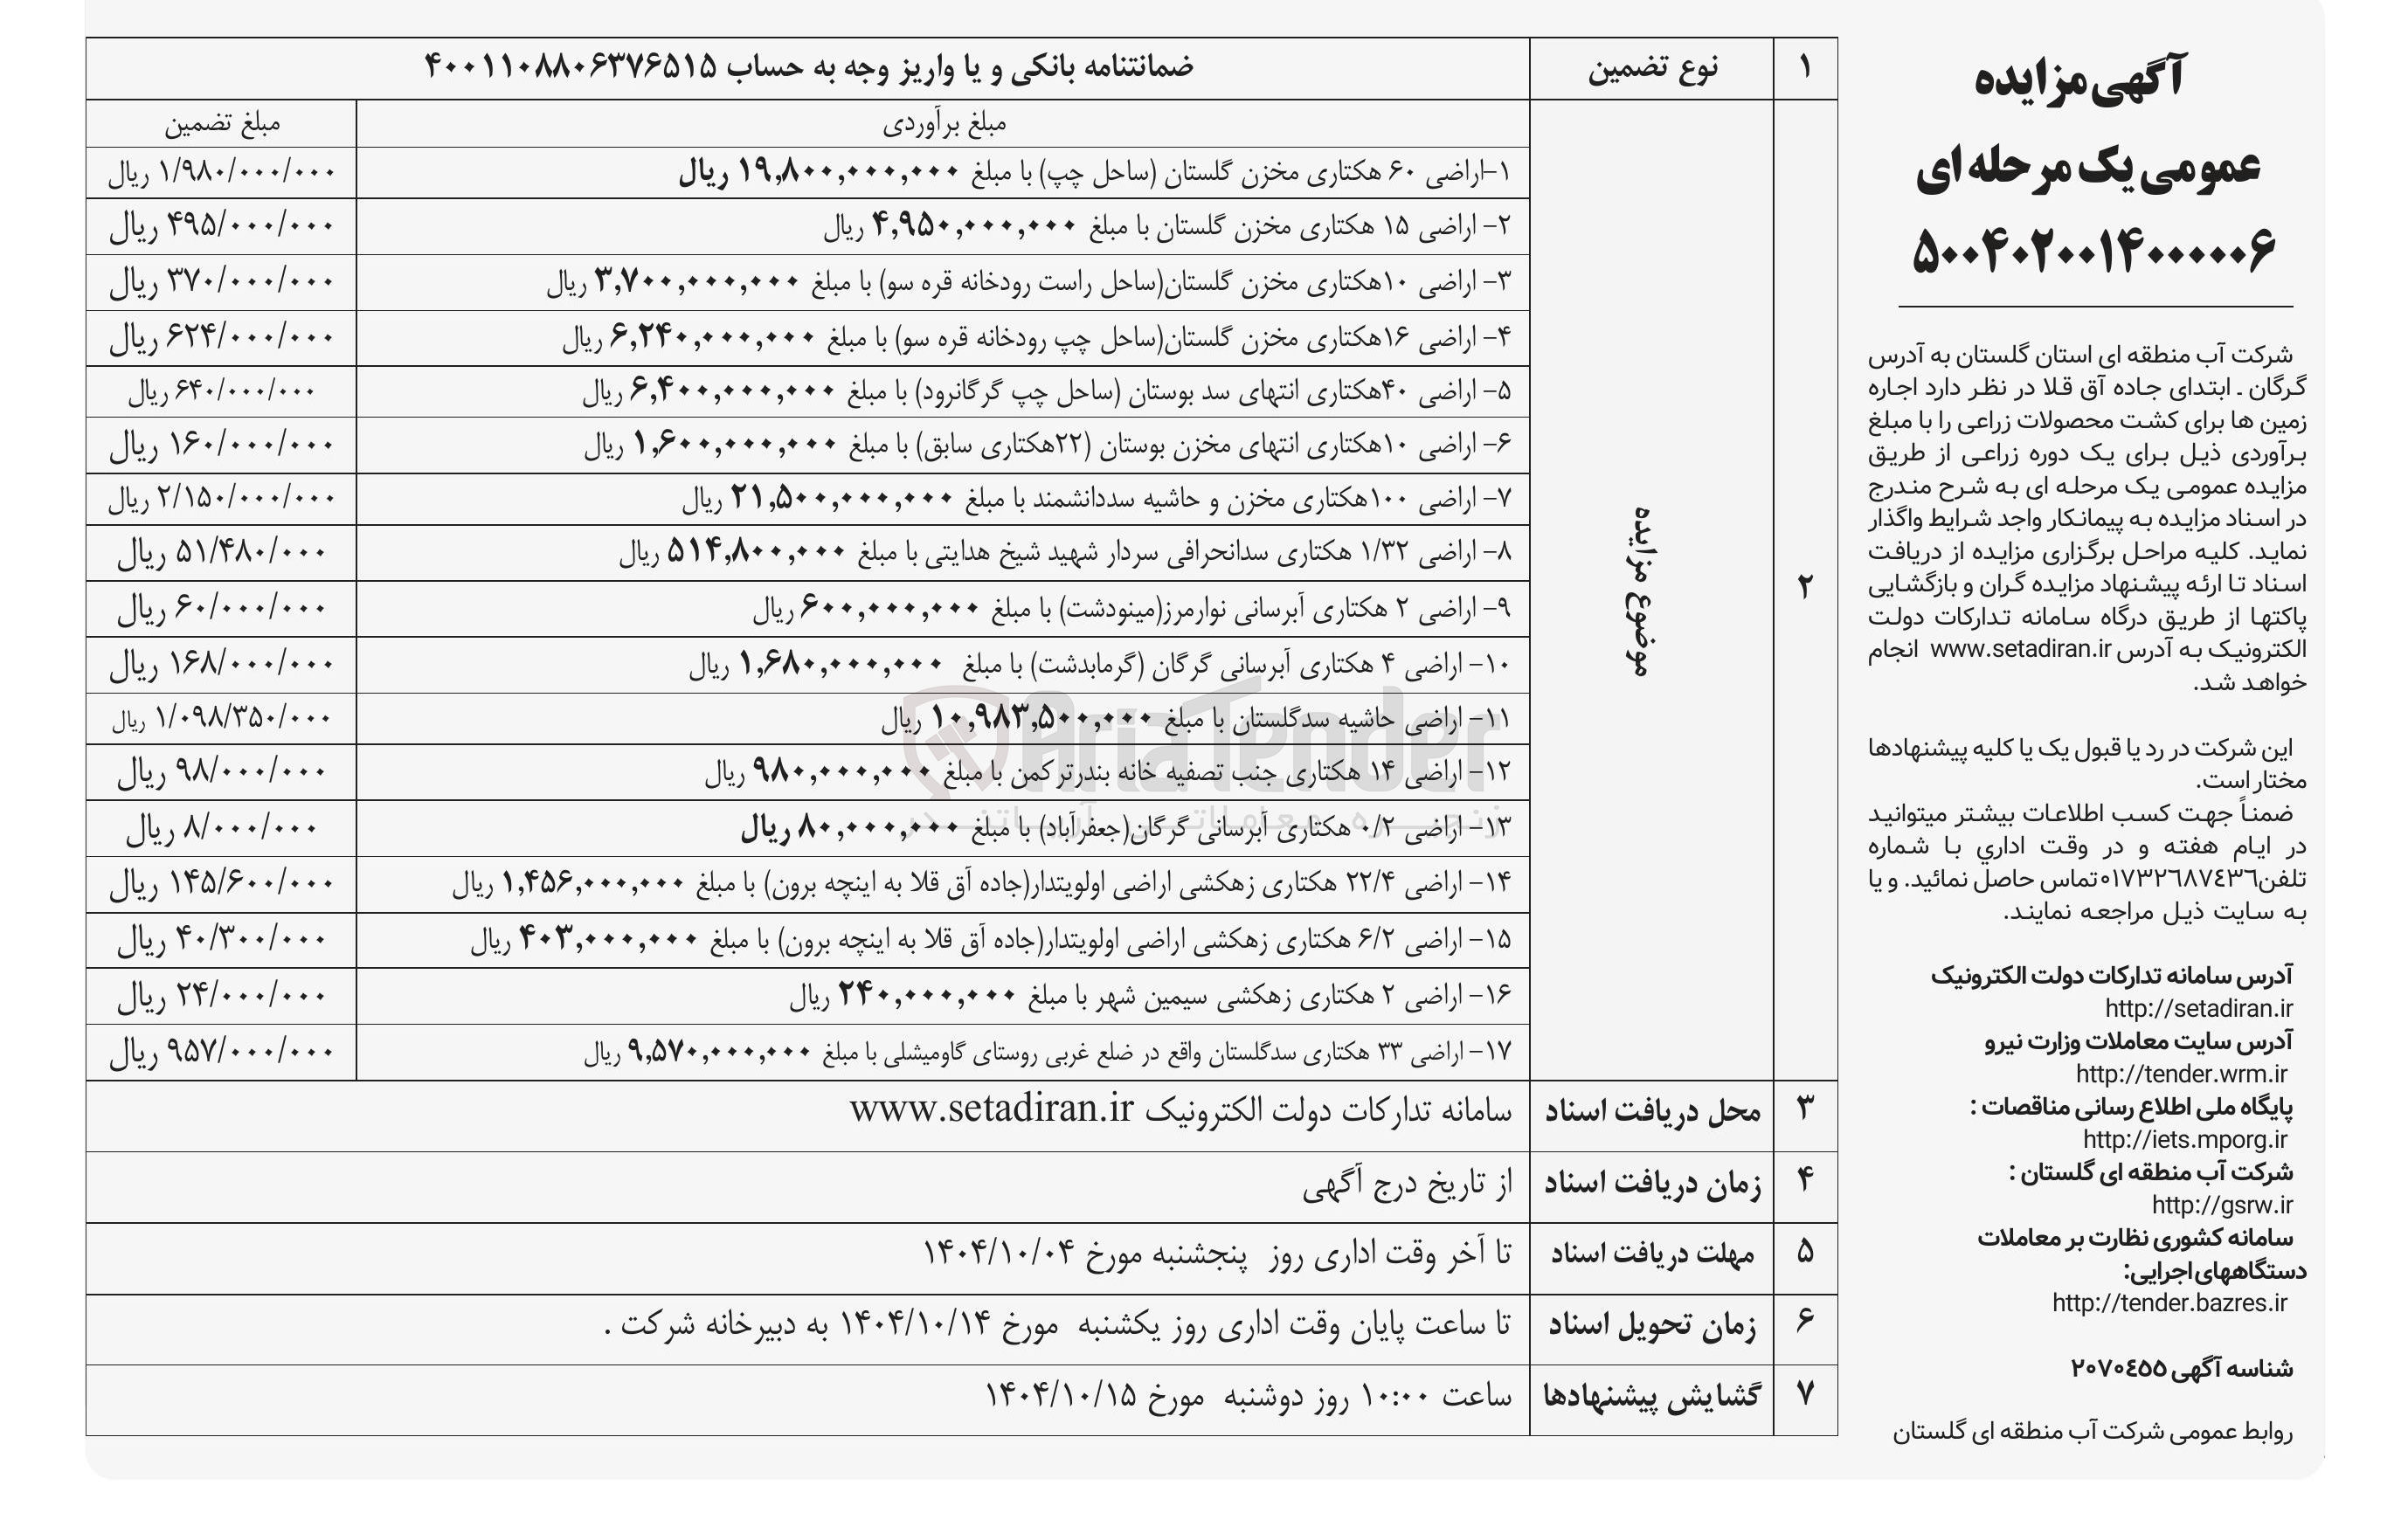 آگهی مزایده
عمومی یک مرحله ای
۵۰۰۴۰۲۰۰۱۴۰۰۰۰۰۶
شرکت آب منطقه ای استان گلستان به آدرس
گرگان ـ ابتدای جاده آق قلا در نظر دارد اجاره
زمین ها برای کشت محصولات زراعی را با مبلغ
برآوردی ذیل برای یک دوره زراعی از طریق
مزایده عمومی یک مرحله ای به شرح مندرج
در اسناد مزایده به پیمانکار واجد شرایط واگذار
نماید. کلیه مراحل برگزاری مزایده از دریافت
اسناد تا ارئه پیشنهاد مزایده گران و بازگشایی
پاکتها از طریق درگاه سامانه تدارکات دولت
الکترونیک به آدرس www.setadiran.ir انجام
خواهد شد.
این شرکت در رد یا قبول یک یا کلیه پیشنهادها
مختار است.
ضمناً جهت کسب اطلاعات بیشتر میتوانید
در ایام هفته و در وقت اداري با شماره
تلفن۰۱۷۳۲٦۸۷٤۳٦تماس حاصل نمائید. و یا
به سایت ذیل مراجعه نمایند.
آدرس سامانه تدارکات دولت الکترونیک
http://setadiran.ir
آدرس سایت معاملات وزارت نیرو
http://tender.wrm.ir
پایگاه ملی اطلاع رسانی مناقصات :
http://iets.mporg.ir
شرکت آب منطقه ای گلستان :
http://gsrw.ir
سامانه کشوری نظارت بر معاملات
دستگاههای اجرایی:
http://tender.bazres.ir
شناسه آگهی ۲۰۷۰٤۵۵
روابط عمومی شرکت آب منطقه ای گلستان
۱ نوع تضمین ضمانتنامه بانکی و یا واریز وجه به حساب ۴۰۰۱۱۰۸۸۰۶۳۷۶۵۱۵
۲ موضوع مزایده
مبلغ برآوردی مبلغ تضمین
۱-اراضی ۶۰ هکتاری مخزن گلستان (ساحل چپ) با مبلغ ۱۹,۸۰۰,۰۰۰,۰۰۰ ریال ۱/۹۸۰/۰۰۰/۰۰۰ ریال
۲- اراضی ۱۵ هکتاری مخزن گلستان با مبلغ ۴,۹۵۰,۰۰۰,۰۰۰ ریال ۴۹۵/۰۰۰/۰۰۰ ریال
۳- اراضی ۱۰هکتاری مخزن گلستان(ساحل راست رودخانه قره سو) با مبلغ ۳,۷۰۰,۰۰۰,۰۰۰ ریال ۳۷۰/۰۰۰/۰۰۰ ریال
۴- اراضی ۱۶هکتاری مخزن گلستان(ساحل چپ رودخانه قره سو) با مبلغ ۶,۲۴۰,۰۰۰,۰۰۰ ریال ۶۲۴/۰۰۰/۰۰۰ ریال
۵- اراضی ۴۰هکتاری انتهای سد بوستان (ساحل چپ گرگانرود) با مبلغ ۶,۴۰۰,۰۰۰,۰۰۰ ریال ۶۴۰/۰۰۰/۰۰۰ ریال
۶- اراضی ۱۰هکتاری انتهای مخزن بوستان (۲۲هکتاری سابق) با مبلغ ۱,۶۰۰,۰۰۰,۰۰۰ ریال ۱۶۰/۰۰۰/۰۰۰ ریال
۷- اراضی ۱۰۰هکتاری مخزن و حاشیه سددانشمند با مبلغ ۲۱,۵۰۰,۰۰۰,۰۰۰ ریال ۲/۱۵۰/۰۰۰/۰۰۰ ریال
۸- اراضی ۱/۳۲ هکتاری سدانحرافی سردار شهید شیخ هدایتی با مبلغ ۵۱۴,۸۰۰,۰۰۰ ریال ۵۱/۴۸۰/۰۰۰ ریال
۹- اراضی ۲ هکتاری آبرسانی نوارمرز(مینودشت) با مبلغ ۶۰۰,۰۰۰,۰۰۰ ریال ۶۰/۰۰۰/۰۰۰ ریال
۱۰- اراضی ۴ هکتاری آبرسانی گرگان (گرمابدشت) با مبلغ ۱,۶۸۰,۰۰۰,۰۰۰ ریال ۱۶۸/۰۰۰/۰۰۰ ریال
۱۱- اراضی حاشیه سدگلستان با مبلغ ۱۰,۹۸۳,۵۰۰,۰۰۰ ریال ۱/۰۹۸/۳۵۰/۰۰۰ ریال
۱۲- اراضی ۱۴ هکتاری جنب تصفیه خانه بندرترکمن با مبلغ ۹۸۰,۰۰۰,۰۰۰ ریال ۹۸/۰۰۰/۰۰۰ ریال
۱۳- اراضی ۰/۲ هکتاری آبرسانی گرگان(جعفرآباد) با مبلغ ۸۰,۰۰۰,۰۰۰ ریال ۸/۰۰۰/۰۰۰ ریال
۱۴- اراضی ۲۲/۴ هکتاری زهکشی اراضی اولویتدار(جاده آق قلا به اینچه برون) با مبلغ ۱,۴۵۶,۰۰۰,۰۰۰ ریال ۱۴۵/۶۰۰/۰۰۰ ریال
۱۵- اراضی ۶/۲ هکتاری زهکشی اراضی اولویتدار(جاده آق قلا به اینچه برون) با مبلغ ۴۰۳,۰۰۰,۰۰۰ ریال ۴۰/۳۰۰/۰۰۰ ریال
۱۶- اراضی ۲ هکتاری زهکشی سیمین شهر با مبلغ ۲۴۰,۰۰۰,۰۰۰ ریال ۲۴/۰۰۰/۰۰۰ ریال
۱۷- اراضی ۳۳ هکتاری سدگلستان واقع در ضلع غربی روستای گاومیشلی با مبلغ ۹,۵۷۰,۰۰۰,۰۰۰ ریال ۹۵۷/۰۰۰/۰۰۰ ریال
۳ محل دریافت اسناد سامانه تدارکات دولت الکترونیک www.setadiran.ir
۴ زمان دریافت اسناد از تاریخ درج آگهی
۵ مهلت دریافت اسناد تا آخر وقت اداری روز پنجشنبه مورخ ۱۴۰۴/۱۰/۰۴
۶ زمان تحویل اسناد تا ساعت پایان وقت اداری روز یکشنبه مورخ ۱۴۰۴/۱۰/۱۴ به دبیرخانه شرکت .
۷ گشایش پیشنهادها ساعت ۱۰:۰۰ روز دوشنبه مورخ ۱۴۰۴/۱۰/۱۵
AriaTender